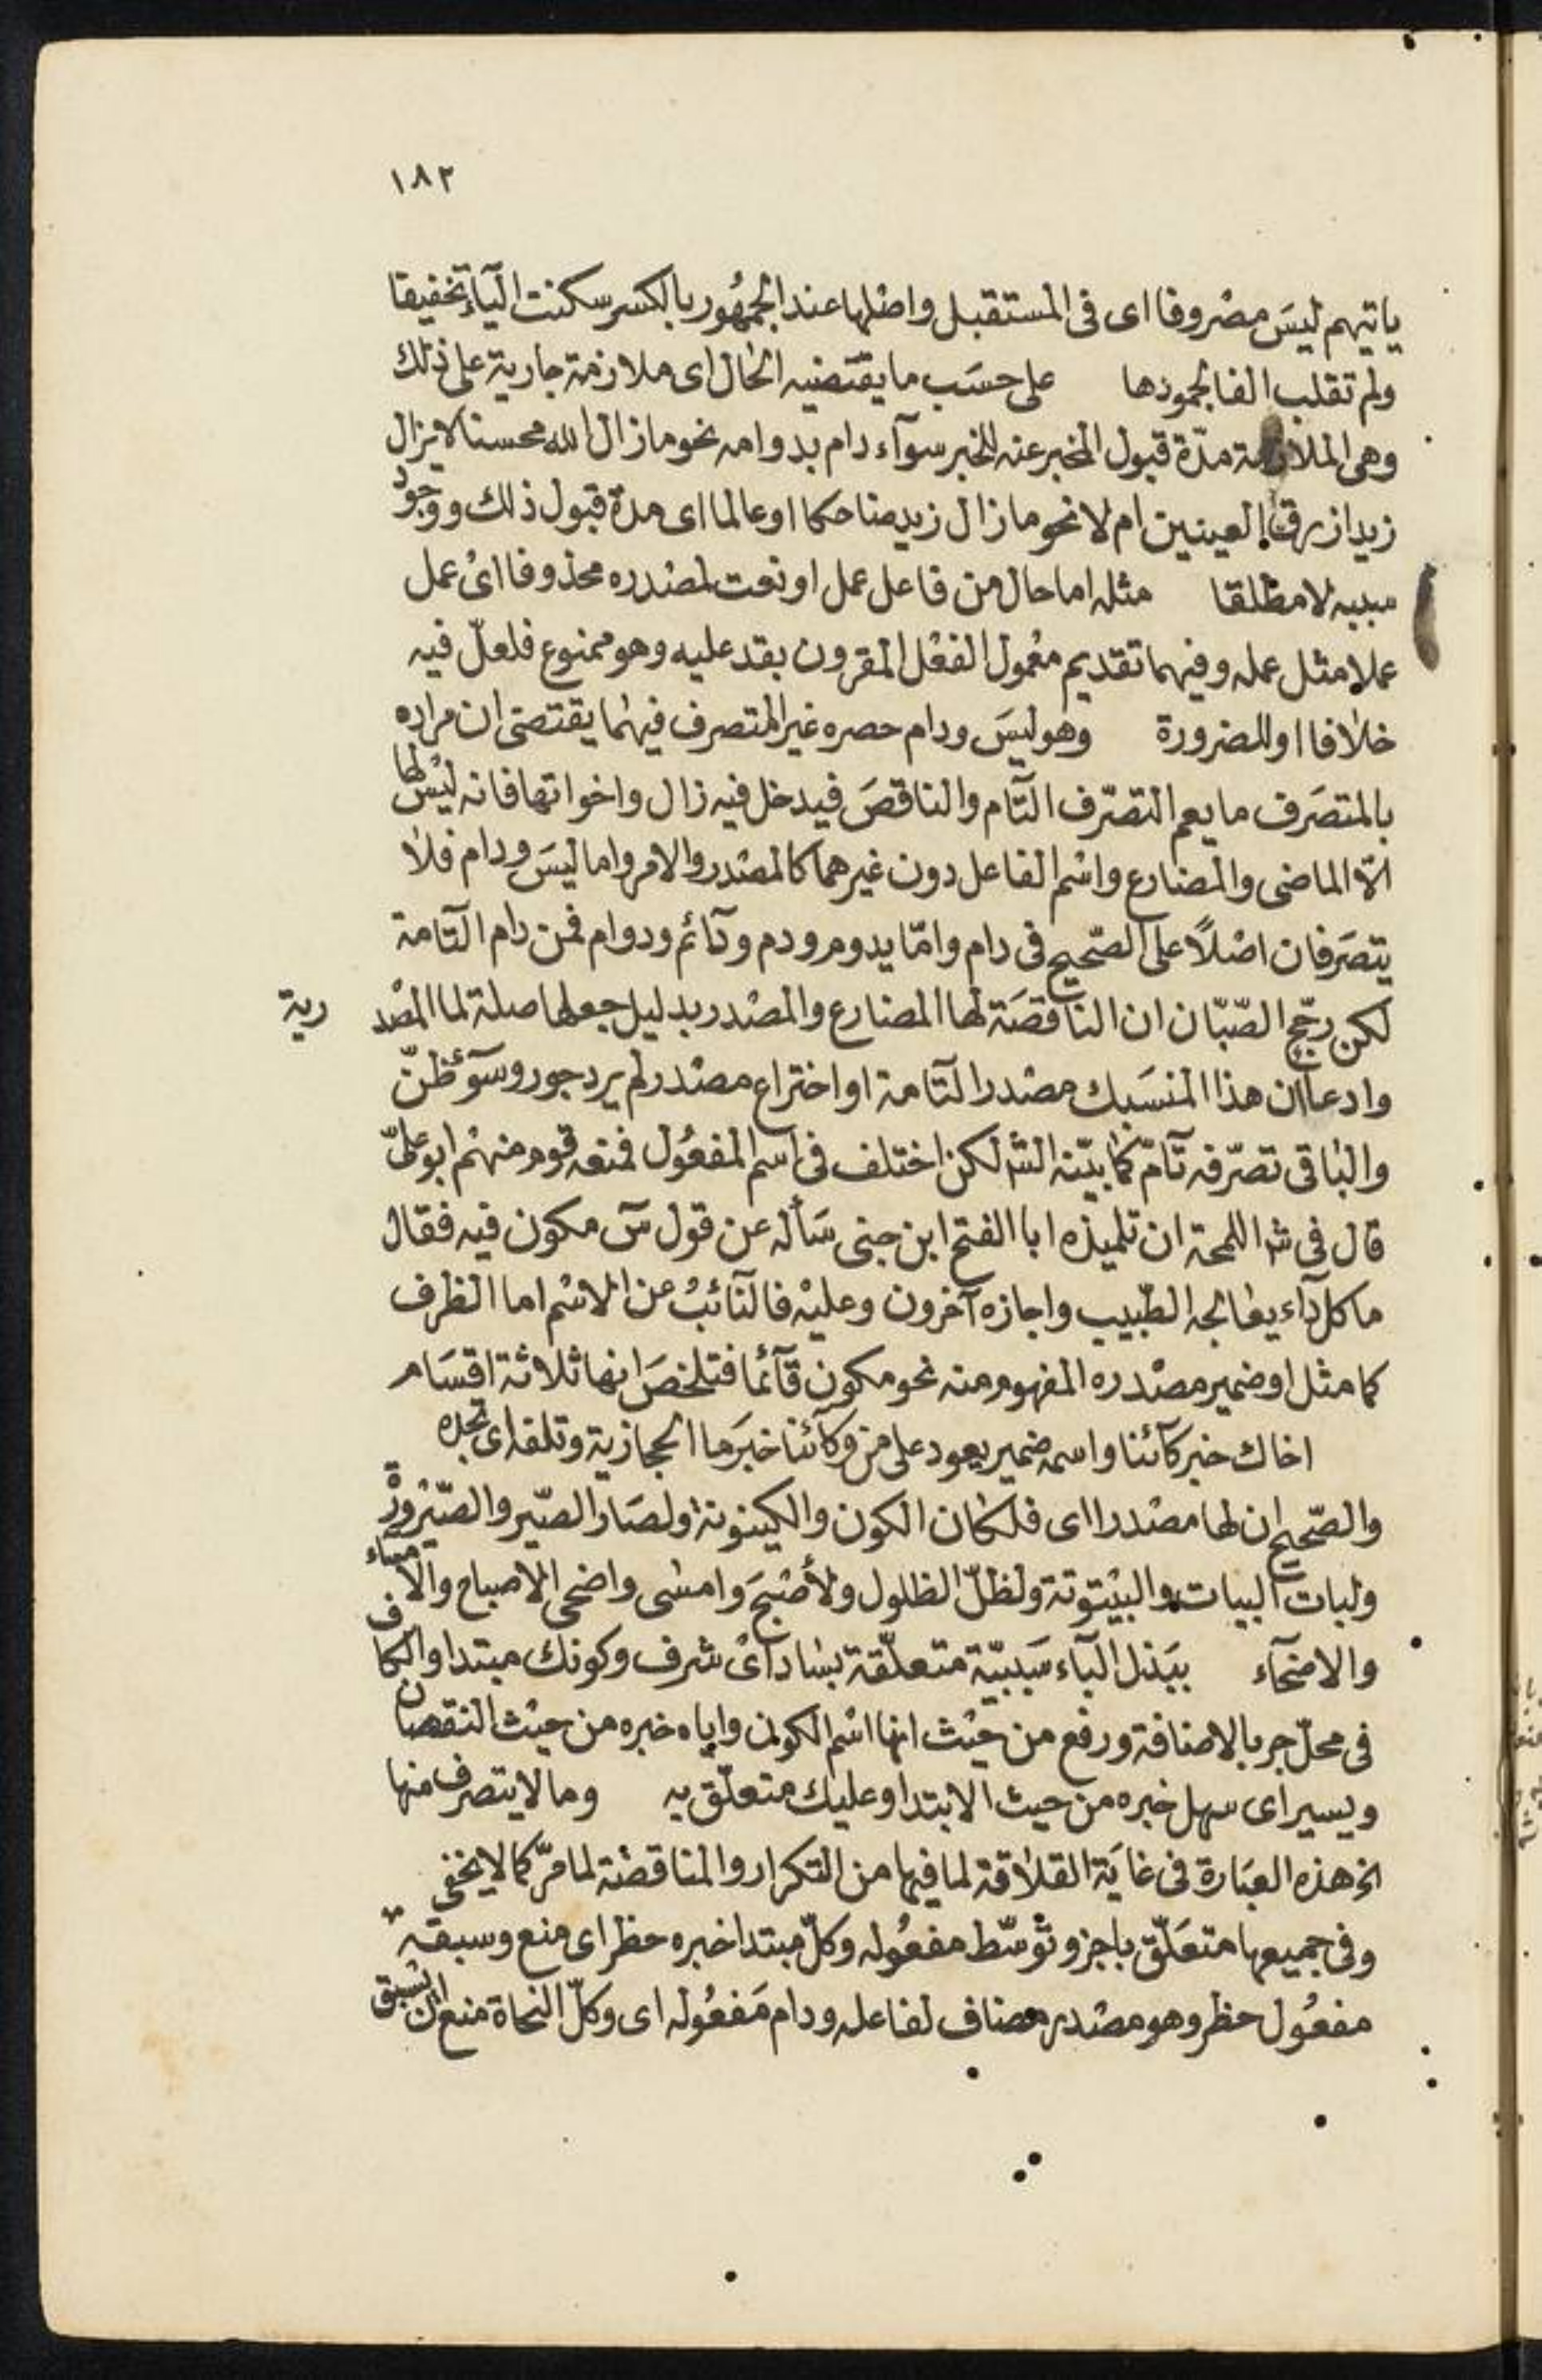 ١٨٢
ياتيهم ليسَ مصروفا اى فى المستقبل واصلها عند الجمهُور بالكسر سكنت اليَآء تخفيفا
ولم تقلب الفا لجمودها على حسَب ما يقتضيه الحال اى ملازمة جارية على ذلك
وهى الملازمة مدّة قبول المخبر عنه للخبر سوآء دام بدوامه نحو ما زال الله محسنا لا يزال
زيد ازرق العينين ام لا نحو ما زال زيد ضاحكا او عالما اى مدة قبول ذلك ووجود
سببه لا مطلقا مثله اما حال من فاعل عمل او نعت لمصدره محذوفا اىْ عمل
عملا مثل عمله وفيهما تقديم معْمول الفعْل المقرون بقد عليه وهو ممنوع فلعلّ فيه
خلافا او للضرورة وهو ليسَ ودام حصره غير المتصرف فيهما يقتضى ان مراده
بالمتصَرف ما يعم التصّرف التّآم والناقصَ فيدخل فيه زال واخواتها فانه ليْس لها
الّا الماضى والمضارع واسْم الفاعل دون غيرهما كالمصْدر والامر واما ليسَ ودام فلا
يتصَرفان اصْلًا على الصّحيح فى دام وامّا يدوم ودم ودآئم ودوام فمن دام التّآمة
لكن رجّح الصّبّان ان الناقصَة لها المضارع والمصْدر بدليل جعلها صلة لما المصْد رية
وادعا ان هذا المنسَبك مصْدر التّآمة او اختراع مصْدر لم يرد جور وسوٓء ظنّ
والباقى تصرّفه تآمّ كما بيّنه الش لكن اختلف فى اسم المفعُول فمنعه قوم منهْم ابو علىّ
قال فى ش اللمحة ان تلميذه ابا الفتح ابن جنى سَأله عن قول سٓ مكون فيه فقال
ما كل دآء يعالجه الطّبيب واجازه آخرون وعليْه فالنّآئبُ عن الاسْم اما الظرف
كما مثل او ضمير مصْدره المفهوم منه نحو مكون قآئما فتلخصَ انها ثلاثة اقسَام
اخاك خبر كآئنا واسمه ضمير يعود على من وكآئنا خبَر ما الحجازية وتلفه اى تجده
والصّحيح ان لها مصْدرا اى فلكان الكون والكينونة ولصَار الصّير والصّيْرورة
ولبات البيات والبيْتوتة ولظلّ الظلول ولأصْبحَ وامسْى واضحى الاصباح والامساء
والاضحآء ببَذل البآء سَببيّة متعلّقة بسْاد اىْ شرف وكونك مبتدا والكاف
فى محلّ جر بالاضافة ورفع من حيْث انها اسْم الكون واياه خبره من حيْث النقصان
ويسير اى سهل خبره من حيث الابتدا وعليك متعلّق به وما لا يتصرف منها
الخ هذه العبَارة فى غايَة القلاقة لما فيها من التكرار والمناقضْة لما مرّ كما لا يخفى
وفى جميعها متعَلّق باجز وتوسّط مفعُوله وكلّ مبتدا خبره حظر اى منع وسبقه
مفعُول حظر وهو مصْدر مضاف لفاعله ودام مَفعُوله اى وكلّ النحاة منع ان تسْبق